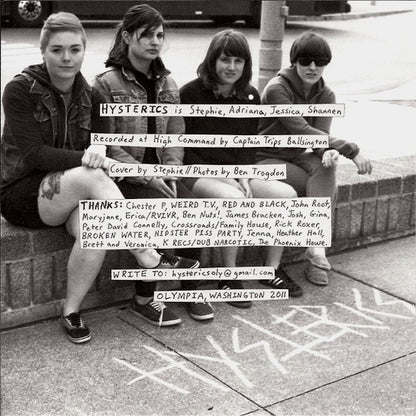 HYSTERICS is Stephie, Adriana, Jessica, Shannen
Recorded at High Command by Captain Trips Ballsington
Cover by Stephie // Photos by Ben Trogdon
THANKS: Chester P, WEIRD T.V., RED AND BLACK, John Root,
Maryjane, Erica/RVIVR, Ben Nuts!, James Bracken, Josh, Gina,
Peter David Connelly, Crossroads/Family House, Rick Roxer,
BROKEN WATER, HIPSTER PISS PARTY, Jenna, Heather Hall,
Brett and Veronica, K RECS/DUB NARCOTIC, The Phoenix House.
WRITE TO: hystericsoly@gmail.com
OLYMPIA, WASHINGTON 2011
HYSTERICS